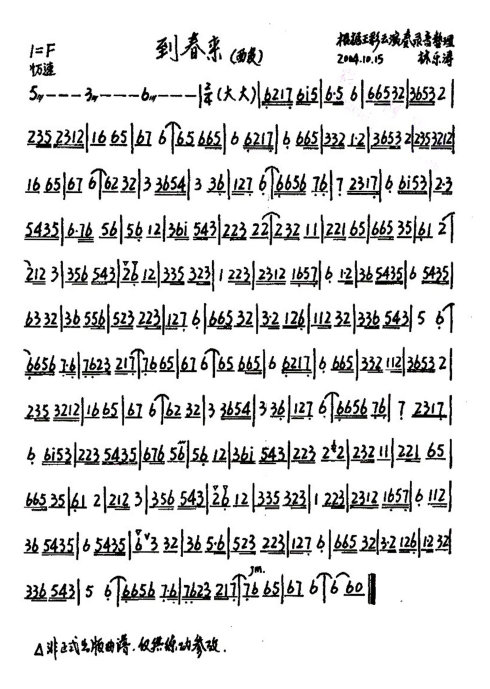 到春来(西皮)
1=F
根据王彩云演奏录音整理
2004.10.15 林乐涛
5〃---3〃---6〃---|2/4(大大)|6217 6i5|6·5 6|66532|36532|
235 2312|16 65|67 6|65 665|6 6217|6 665|332 1·2|3653 2|2353212|
16 65|67 6|62 32|3 3654|3 36|127 6|6656 76|7 2317|6 6i53|2·3
5435|6·76 56|56 12|36i 543|223 22|232 11|221 65|665 35|61 2|
212 3|356 543|26 12|335 323|1 223|2312 1657|6 1·2|36 5435|6 5435|
63 32|36 556|523 223|127 6|665 32|3·2 126|112 32|336 543|5 6|
6656 7·6|7623 217|76 65|67 6|65 665|6 6217|6 665|332 112|3653 2|
235 3212|16 65|67 6|62 32|3 3654|3 36|127 6|6656 76|7 2317|
6 6i53|223 5435|676 56|56 12|36i 543|223 2 2|232 11|221 65|
665 35|61 2|212 3|356 543|26 12|335 323|1 223|2312 1657|6 112|
36 5435|6 5435|6 3 32|36 5·6|523 223|127 6|665 32|3·2 126|12 32|
336 543|5 6|6656 7·6|7623 217|76 65|67 6|6 60‖
△非正式出版曲谱.仅供练功参改.